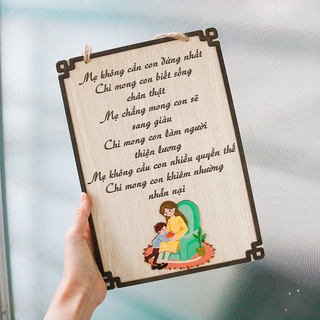 Mẹ không cần con đứng nhất
Chỉ mong con biết sống
chân thật
Mẹ chẳng mong con sẽ
sang giàu
Chỉ mong con làm người
thiện lương
Mẹ không cầu con nhiều quyền thế
Chỉ mong con khiêm nhường
nhẫn nại